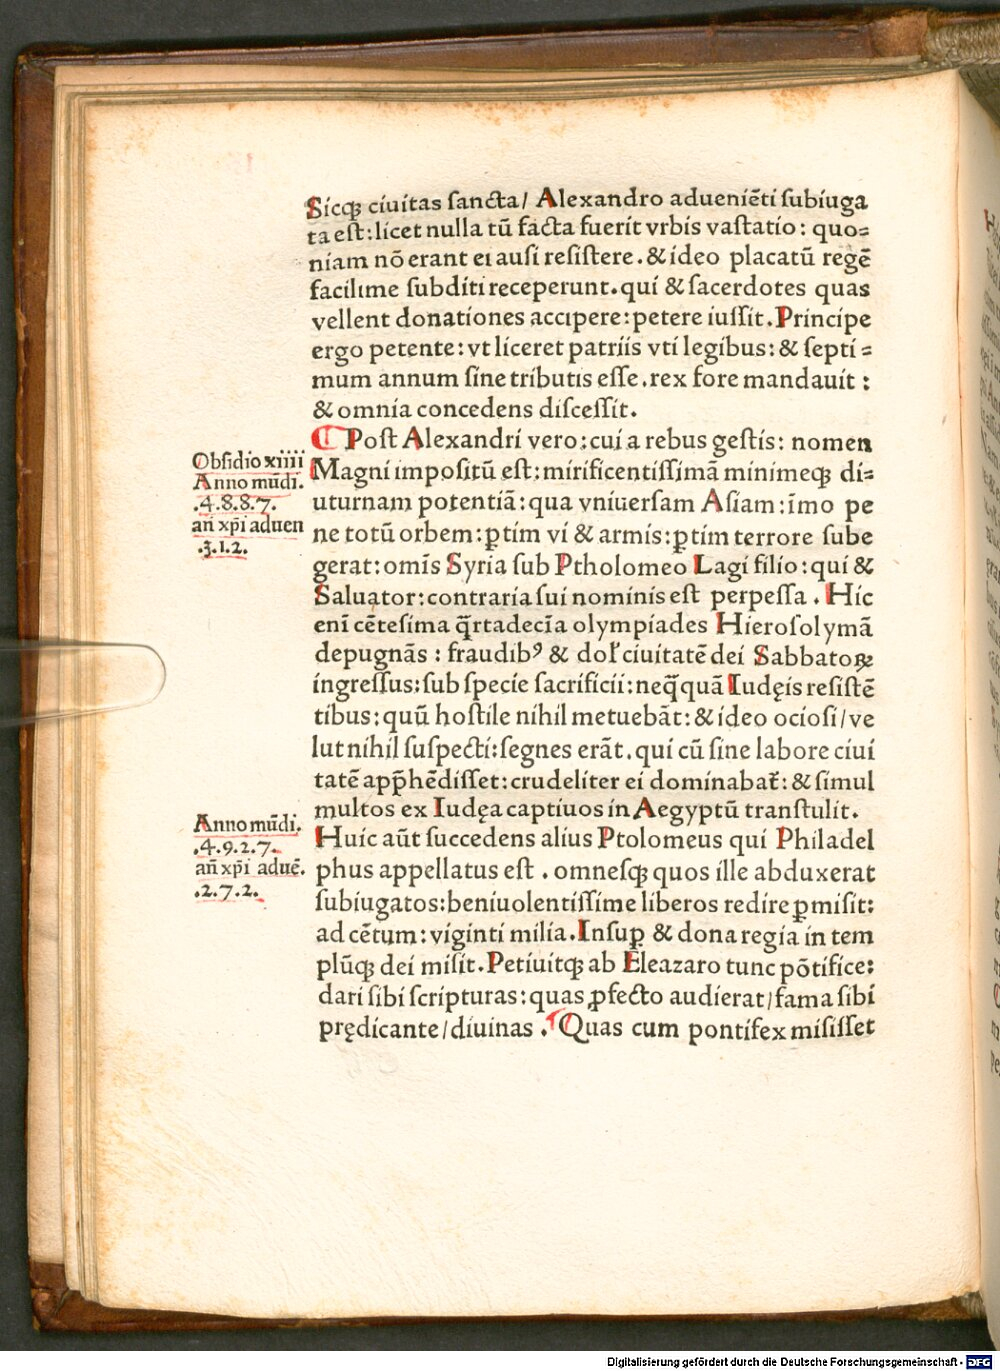 Sicqꝫ ciuitas sancta/ Alexandro adueniēti subiuga
ta est: licet nulla tū facta fuerit vrbis vastatio: quo=
niam nō erant ei ausi resistere. & ideo placatū regē
facilime subditi receperunt. qui & sacerdotes quas
vellent donationes accipere: petere iussit. Principe
ergo petente: vt liceret patriis vti legibus: & septi=
mum annum sine tributis esse. rex fore mandauit:
& omnia concedens discessit.
¶ Post Alexandri vero: cui a rebus gestis: nomen
Magni impositū est: mirificentissimā minimeqꝫ di=
uturnam potentiā: qua vniuersam Asiam: īmo pe
ne totū orbem: ꝑtim vi & armis: ꝑtim terrore sube
gerat: omīs Syria sub Ptholomeo Lagi filio: qui &
Saluator: contraria sui nominis est perpessa. Hic
enī cētesima qr̄tadecīa olympiades Hierosolymā
depugnās: fraudibꝰ & dol' ciuitatē dei Sabbatoꝝ
ingressus: sub specie sacrificii: neqq̄quā Iudęis resistē
tibus: quū hostile nihil metuebāt: & ideo ociosi/ ve
lut nihil suspecti: segnes erāt. qui cū sine labore ciui
tatē app̄hēdisset: crudeliter ei dominabat̄: & simul
multos ex Iudęa captiuos in Aegyptū transtulit.
Huic aūt succedens alius Ptolomeus qui Philadel
phus appellatus est. omnesqꝫ quos ille abduxerat
subiugatos: beniuolentissime liberos redire ꝑmisit:
ad cētum: viginti milia. Insuꝑ & dona regia in tem
plūqꝫ dei misit. Petiuitqꝫ ab Eleazaro tunc pōtifice:
dari sibi scripturas: quas ꝓfecto audierat/ fama sibi
prędicante/ diuinas. Quas cum pontifex misisset
Obsidio xiiii
Anno mūdi.
.4.8.8.7.
añ xp̄i aduen
.3.1.2.
Anno mūdi.
.4.9.2.7.
añ xp̄i aduē.
.2.7.2.
Digitalisierung gefördert durch die Deutsche Forschungsgemeinschaft - DFG